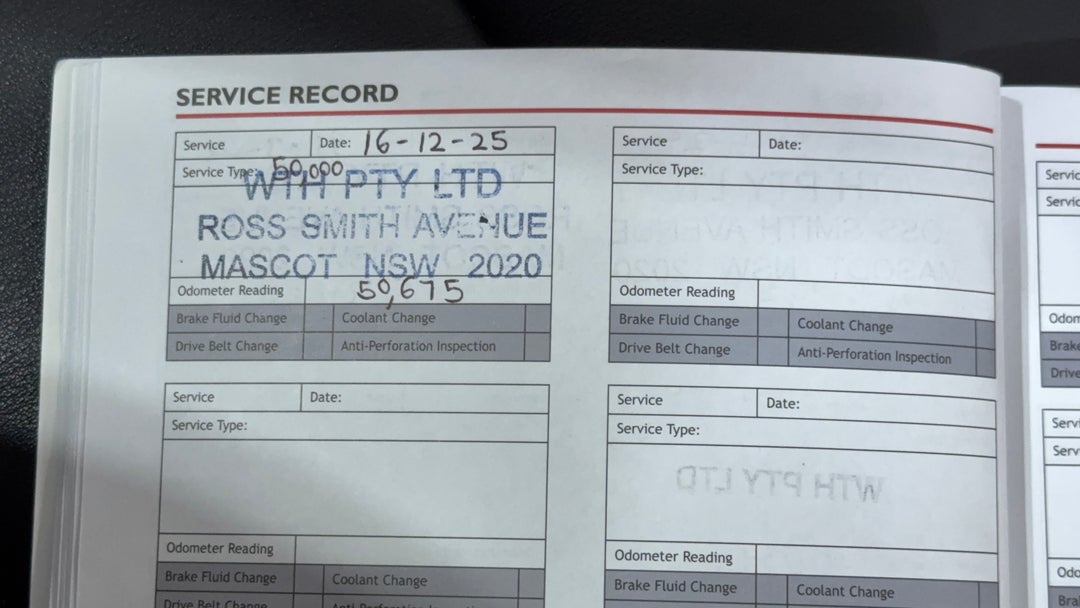 SERVICE RECORD
Service Date: 16-12-25
Service Type: 50,000
WTH PTY LTD
ROSS SMITH AVENUE
MASCOT NSW 2020
Odometer Reading 50,675
Brake Fluid Change Coolant Change
Drive Belt Change Anti-Perforation Inspection
Service Date:
Service Type:
Odometer Reading
Brake Fluid Change Coolant Change
Drive Belt Change Anti-Perforation Inspection
Service Date:
Service Type:
Odometer Reading
Brake Fluid Change Coolant Change
Drive Belt Change
Service Date:
Service Type:
WTH PTY LTD
Odometer Reading
Brake Fluid Change Coolant Change